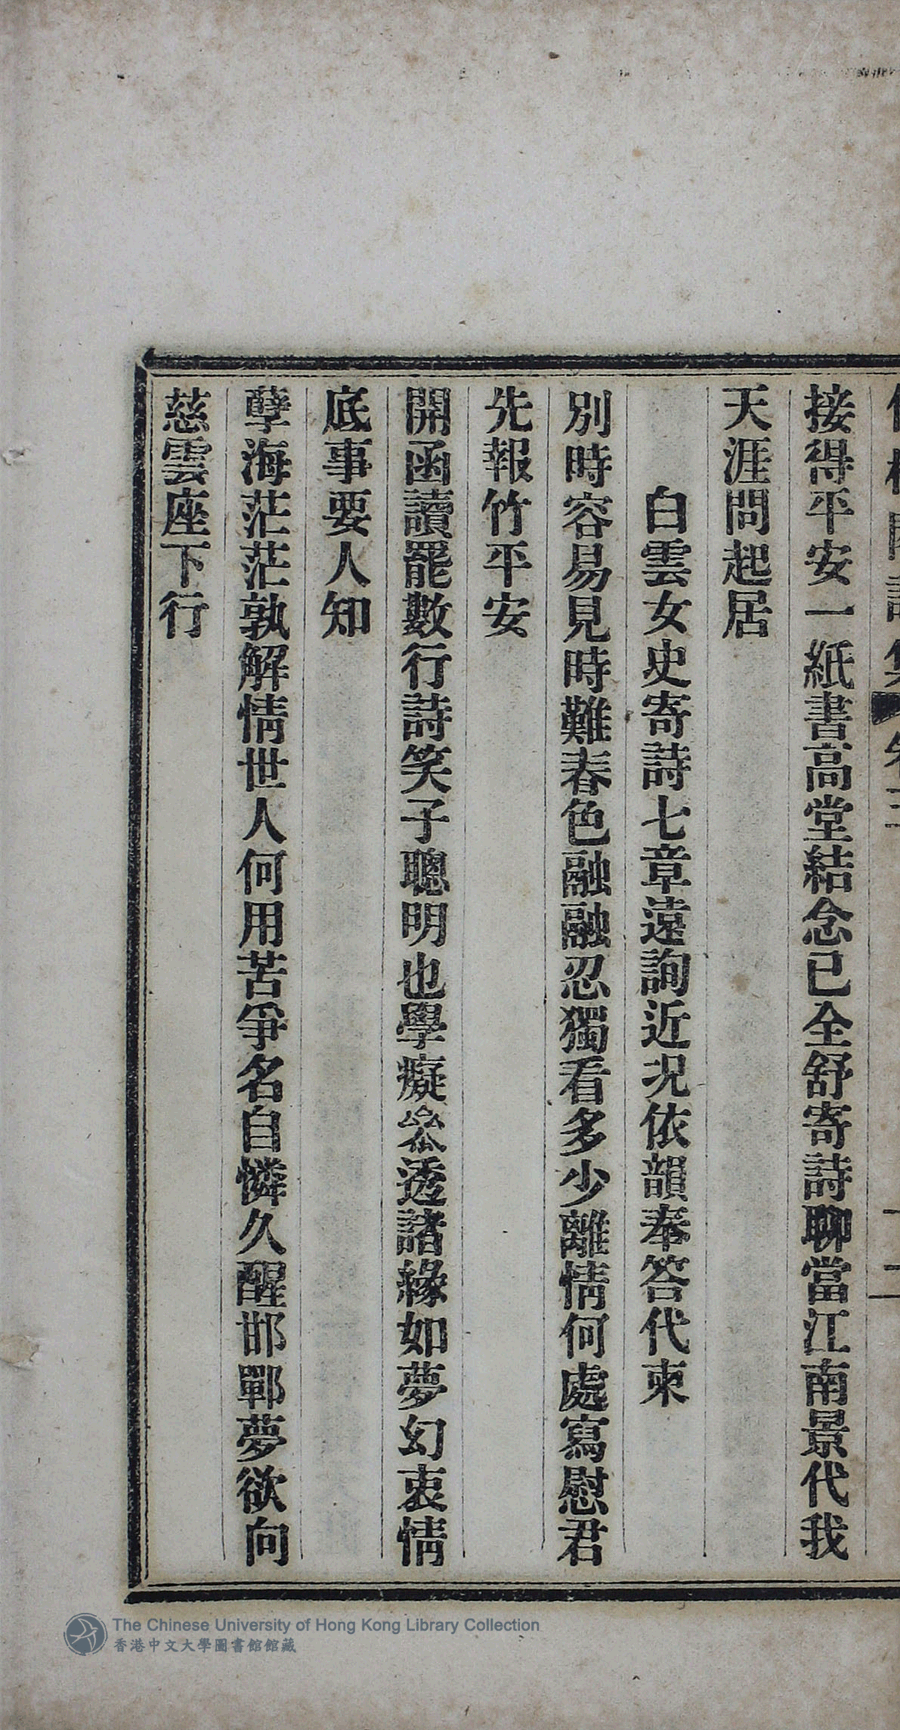 接得平安一紙書高堂結念已全舒寄詩聊當江南景代我
天涯問起居
白雲女史寄詩七章遠詢近況依韻奉答代柬
別時容易見時難春色融融忍獨看多少離情何處寫慰君
先報竹平安
開函讀罷數行詩笑子聰明也學癡叅透諸緣如夢幻衷情
底事要人知
孽海茫茫孰解情世人何用苦爭名自憐久醒邯鄲夢欲向
慈雲座下行
The Chinese University of Hong Kong Library Collection
香港中文大學圖書館館藏